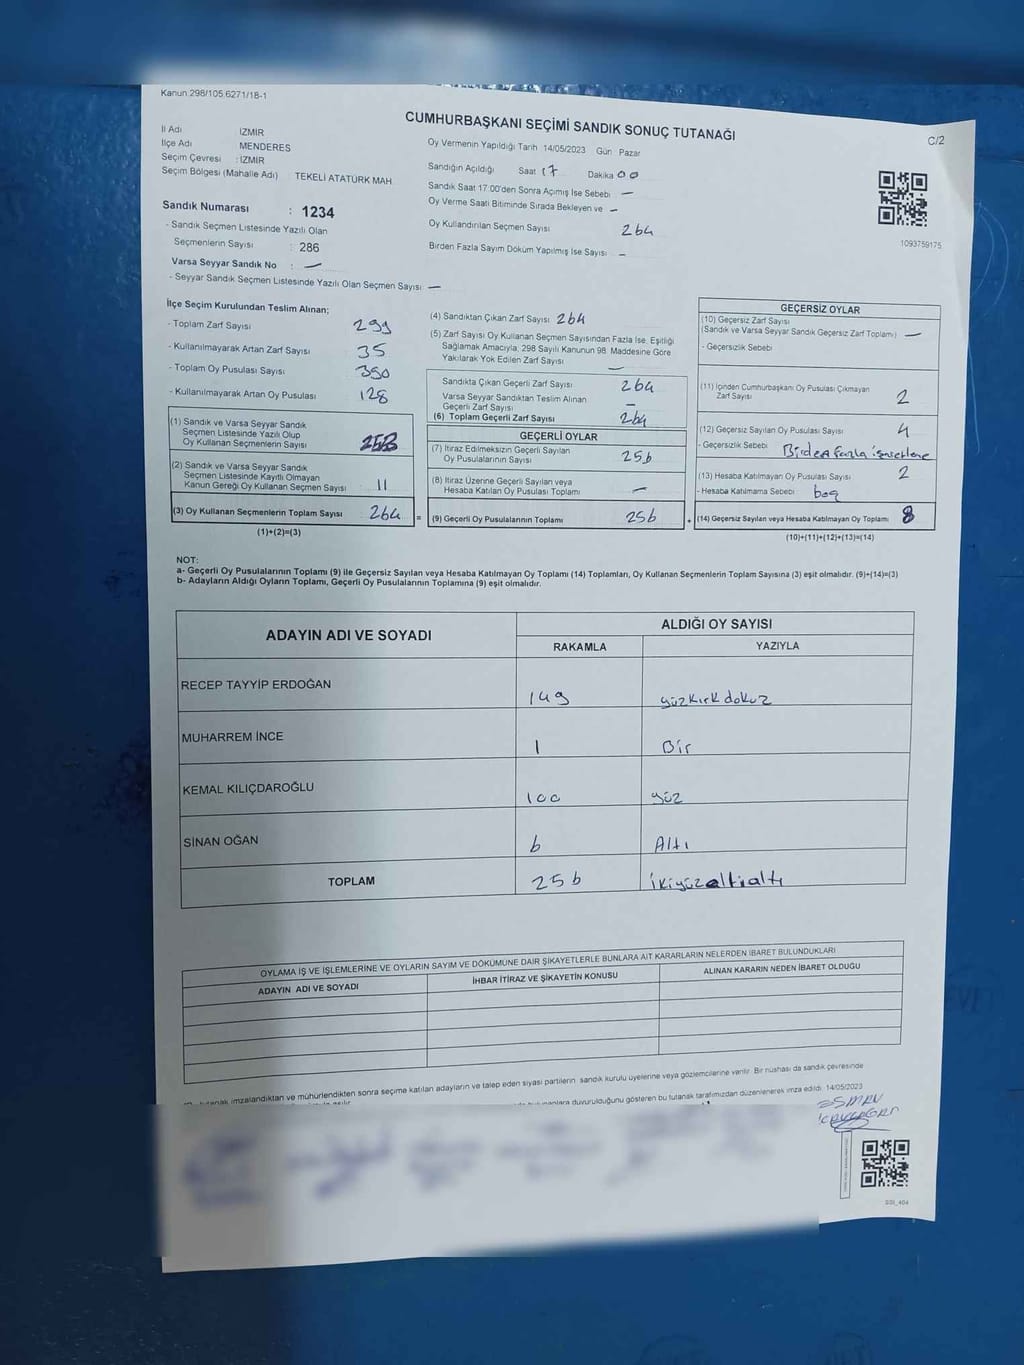 Kanun 298/105.6271/18-1
CUMHURBAŞKANI SEÇİMİ SANDIK SONUÇ TUTANAĞI
C/2
İl Adı İZMİR
İlçe Adı MENDERES
Seçim Çevresi : İZMİR
Seçim Bölgesi (Mahalle Adı) TEKELİ ATATÜRK MAH.
Sandık Numarası : 1234
- Sandık Seçmen Listesinde Yazılı Olan
Seçmenlerin Sayısı : 286
Varsa Seyyar Sandık No : —
- Seyyar Sandık Seçmen Listesinde Yazılı Olan Seçmen Sayısı —
Oy Vermenin Yapıldığı Tarih 14/05/2023 Gün Pazar
Sandığın Açıldığı Saat 17 Dakika 00
Sandık Saat 17:00'den Sonra Açılmış İse Sebebi —
Oy Verme Saati Bitiminde Sırada Bekleyen ve —
Oy Kullandırılan Seçmen Sayısı 264
Birden Fazla Sayım Döküm Yapılmış İse Sayısı —
1093759175
İlçe Seçim Kurulundan Teslim Alınan;
- Toplam Zarf Sayısı 299
- Kullanılmayarak Artan Zarf Sayısı 35
- Toplam Oy Pusulası Sayısı 390
- Kullanılmayarak Artan Oy Pusulası 128
(1) Sandık ve Varsa Seyyar Sandık
Seçmen Listesinde Yazılı Olup
Oy Kullanan Seçmenlerin Sayısı
(2) Sandık ve Varsa Seyyar Sandık
Seçmen Listesinde Kayıtlı Olmayan
Kanun Gereği Oy Kullanan Seçmen Sayısı 11
(3) Oy Kullanan Seçmenlerin Toplam Sayısı 264
(1)+(2)=(3)
(4) Sandıktan Çıkan Zarf Sayısı 264
(5) Zarf Sayısı Oy Kullanan Seçmen Sayısından Fazla İse, Eşitliği
Sağlamak Amacıyla, 298 Sayılı Kanunun 98. Maddesine Göre
Yakılarak Yok Edilen Zarf Sayısı —
Sandıkta Çıkan Geçerli Zarf Sayısı 264
Varsa Seyyar Sandıktan Teslim Alınan
Geçerli Zarf Sayısı —
(6) Toplam Geçerli Zarf Sayısı 264
GEÇERLİ OYLAR
(7) İtiraz Edilmeksizin Geçerli Sayılan
Oy Pusulalarının Sayısı 256
(8) İtiraz Üzerine Geçerli Sayılan veya
Hesaba Katılan Oy Pusulası Toplamı —
= (9) Geçerli Oy Pusulalarının Toplamı 256
GEÇERSİZ OYLAR
(10) Geçersiz Zarf Sayısı
(Sandık ve Varsa Seyyar Sandık Geçersiz Zarf Toplamı) —
- Geçersizlik Sebebi
(11) İçinden Cumhurbaşkanı Oy Pusulası Çıkmayan
Zarf Sayısı 2
(12) Geçersiz Sayılan Oy Pusulası Sayısı 4
- Geçersizlik Sebebi Birden fazla işaretleme
(13) Hesaba Katılmayan Oy Pusulası Sayısı 2
- Hesaba Katılmama Sebebi boş
+ (14) Geçersiz Sayılan veya Hesaba Katılmayan Oy Toplamı 8
(10)+(11)+(12)+(13)=(14)
NOT:
a- Geçerli Oy Pusulalarının Toplamı (9) ile Geçersiz Sayılan veya Hesaba Katılmayan Oy Toplamı (14) Toplamları, Oy Kullanan Seçmenlerin Toplam Sayısına (3) eşit olmalıdır. (9)+(14)=(3)
b- Adayların Aldığı Oyların Toplamı, Geçerli Oy Pusulalarının Toplamına (9) eşit olmalıdır.
ADAYIN ADI VE SOYADI
ALDIĞI OY SAYISI
RAKAMLA YAZIYLA
RECEP TAYYİP ERDOĞAN 149 yüzkırkdokuz
MUHARREM İNCE 1 Bir
KEMAL KILIÇDAROĞLU 100 yüz
SİNAN OĞAN 6 Altı
TOPLAM 256 ikiyüzaltıaltı
OYLAMA İŞ VE İŞLEMLERİNE VE OYLARIN SAYIM VE DÖKÜMÜNE DAİR ŞİKAYETLERLE BUNLARA AİT KARARLARIN NELERDEN İBARET BULUNDUKLARI
ADAYIN ADI VE SOYADI İHBAR İTİRAZ VE ŞİKAYETİN KONUSU ALINAN KARARIN NEDEN İBARET OLDUĞU
tutanak imzalandıktan ve mühürlendikten sonra seçime katılan adayların ve talep eden siyasi partilerin sandık kurulu üyelerine veya gözlemcilerine verilir. Bir nüshası da sandık çevresinde
duyurulduğunu gösteren bu tutanak tarafımızdan düzenlenerek imza edildi. 14/05/2023